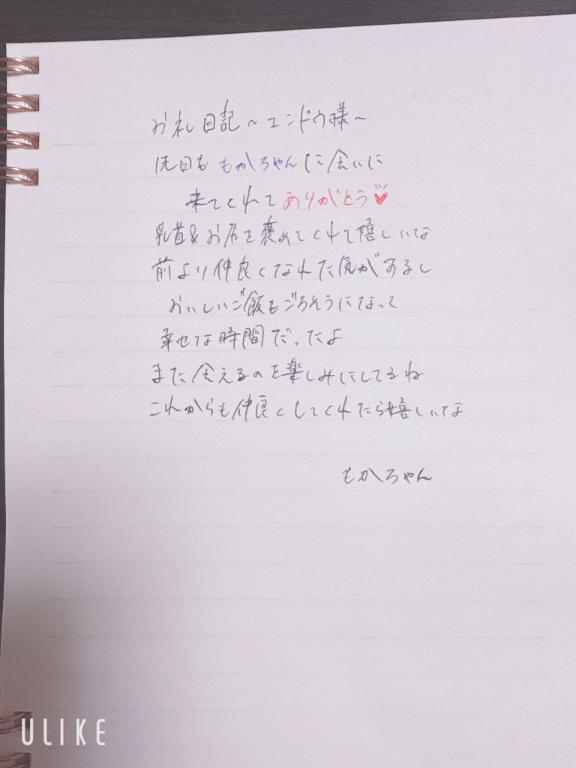 お礼日記〜エンドウ様〜
先日も もかちゃんに会いに
来てくれてありがとう
乳首&お尻を褒めてくれて嬉しいな
前より仲良くなれた気がするし
おいしいご飯もごちそうになって
幸せな時間だったよ
また会えるのを楽しみにしてるね
これからも仲良くしてくれたら嬉しいな
もかちゃん
ULIKE